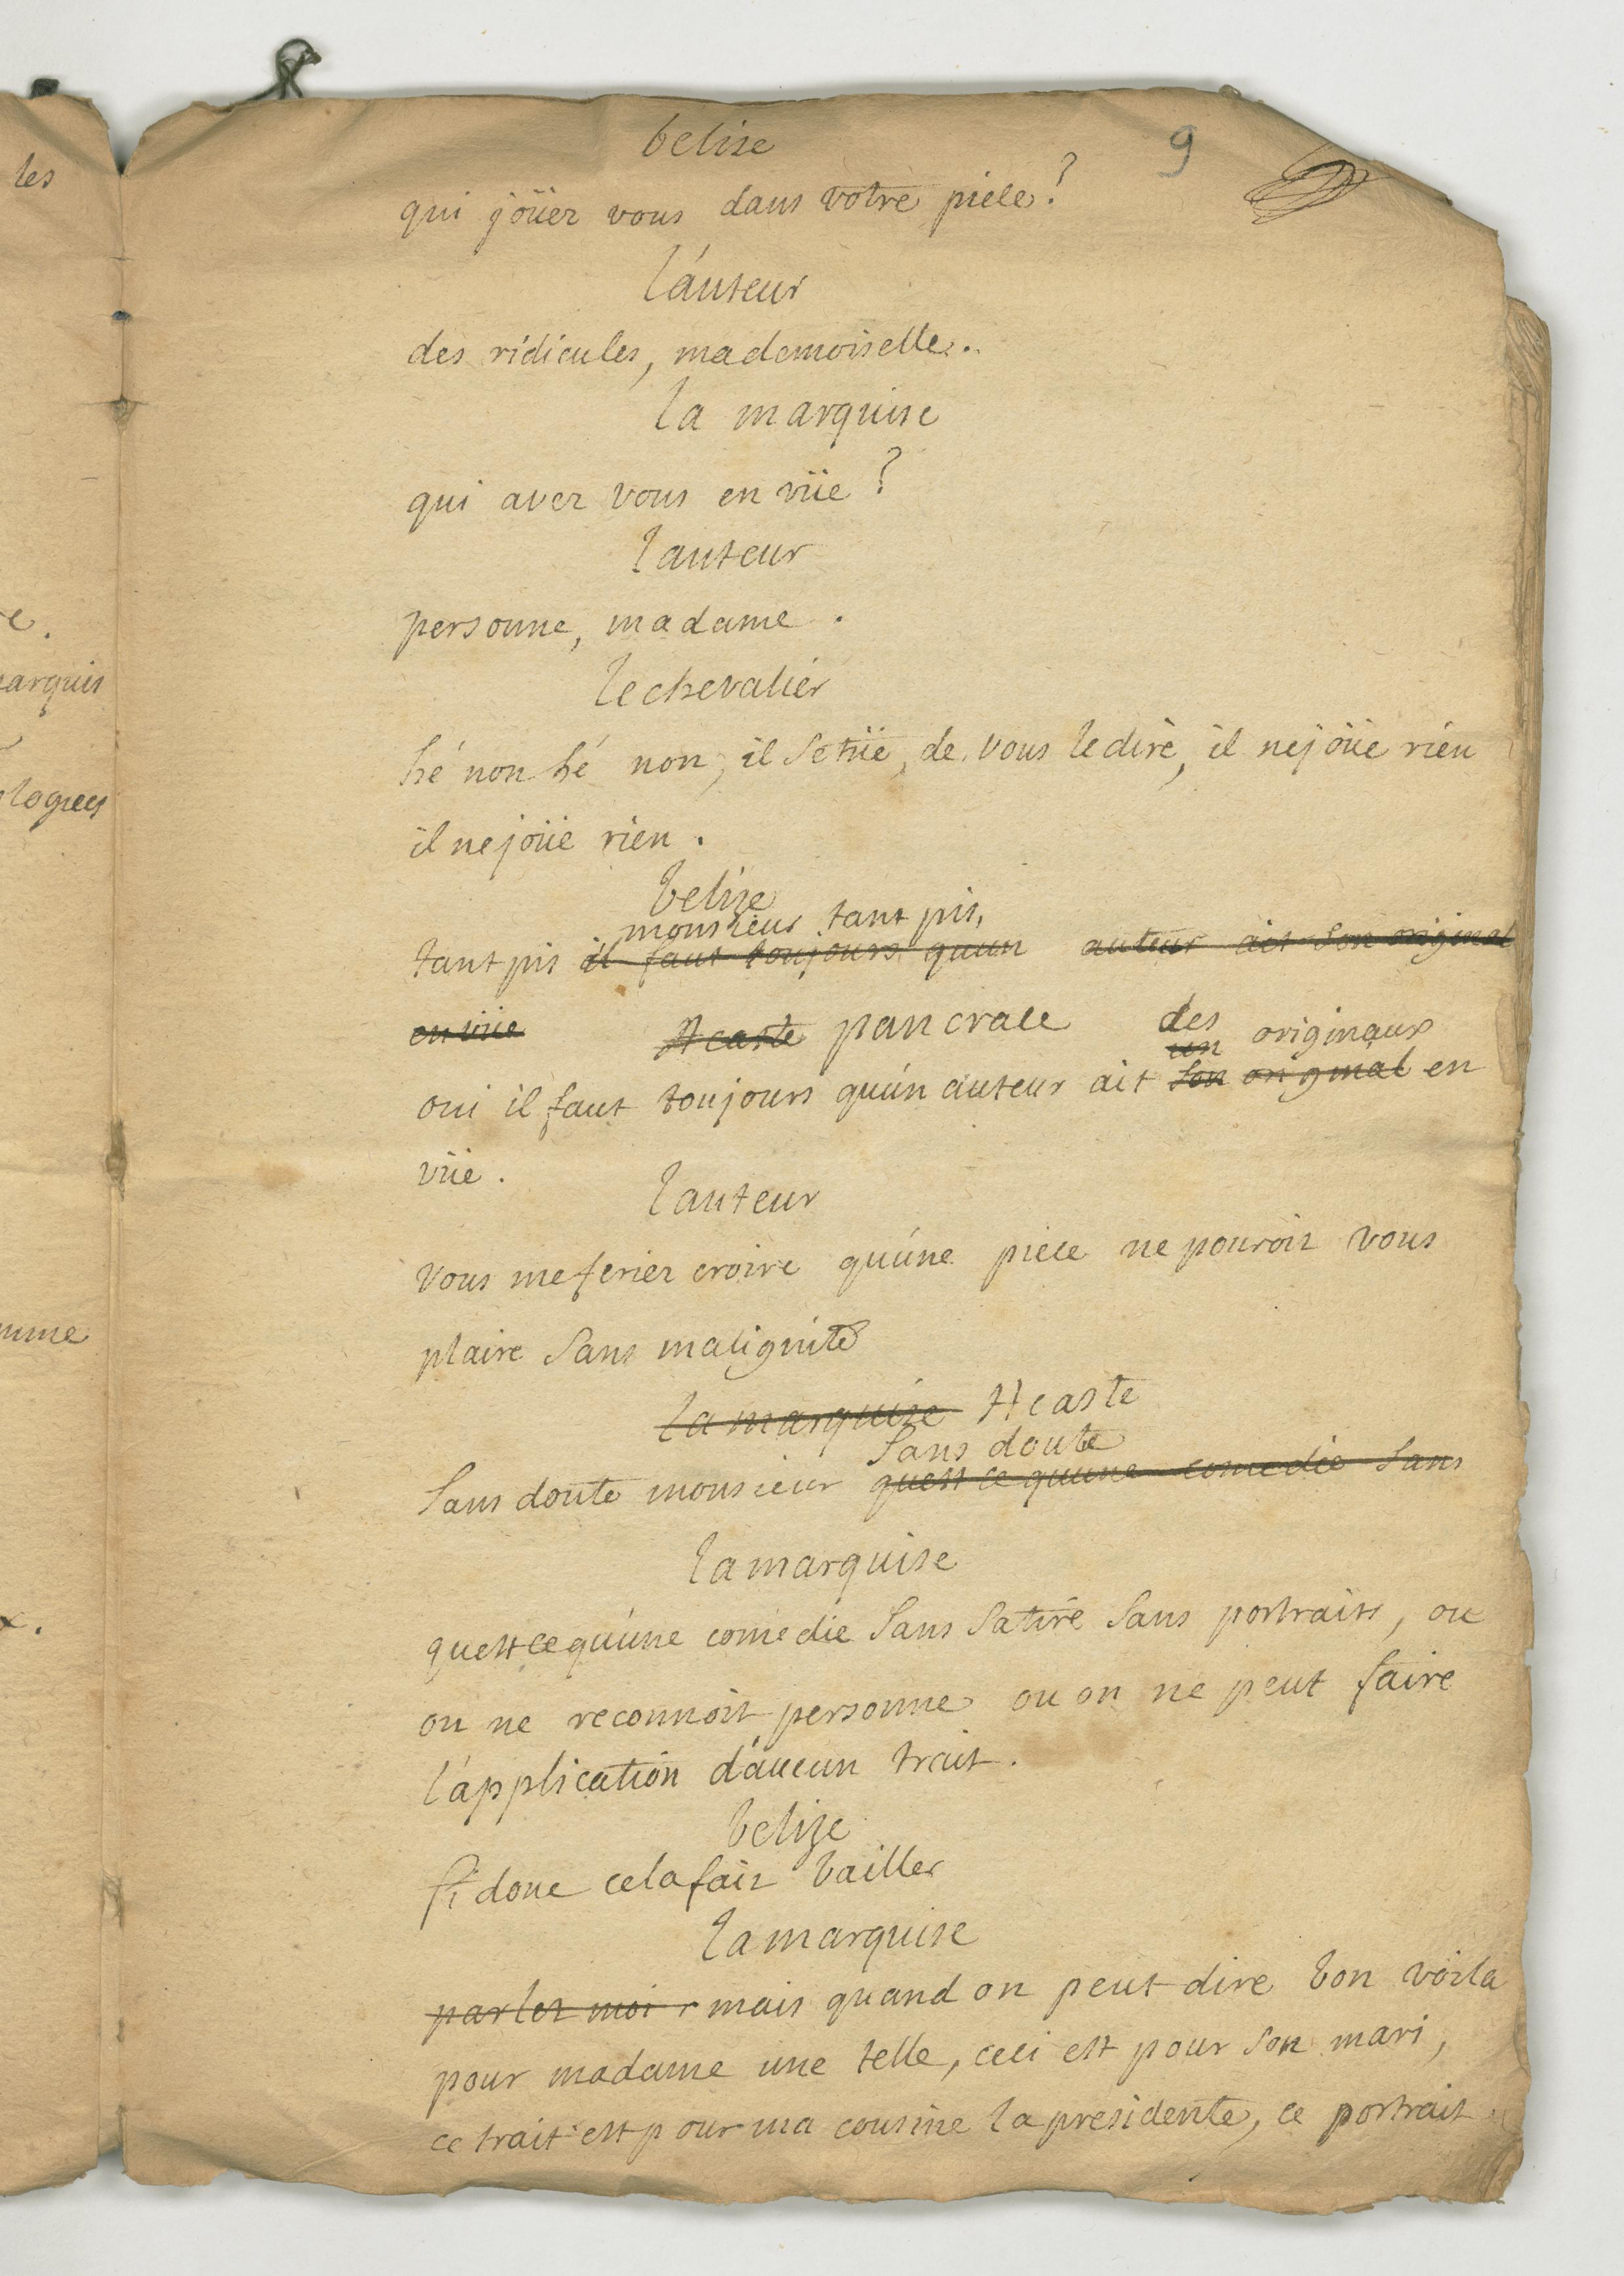 les
e.
arquis
logues
mme
x.
9
belize
qui joüer vous dans votre piece?
l'auteur
des ridicules, mademoiselle.
la marquise
qui avez vous en vüe?
lauteur
personne, madame.
le chevalier
hé non hé non, il se tüe, de vous le dire, il ne joüe rien
il ne joüe rien.
belize
monsieur tant pis,
tant pis il faut toujours quun auteur ait son original
en vüe
Acaste pancrace
des originaux
un
oui il faut toujours qu'un auteur ait son original en
vüe.
lauteur
vous me feriez croire qu'une piece ne pouroit vous
plaire sans malignité
la marquize Acaste
sans doute
sans doute monsieur quest ce quune comedie sans
la marquise
quest ce qu'une comedie sans satire sans portraits, ou
on ne reconnoit personne ou on ne peut faire
l'application d'aucun trait.
belize
fi donc cela fait bailler
la marquise
parlez moi r mais quand on peut dire bon voila
pour madame une telle, ceci est pour son mari,
ce trait est pour ma cousine la presidente, ce portrait